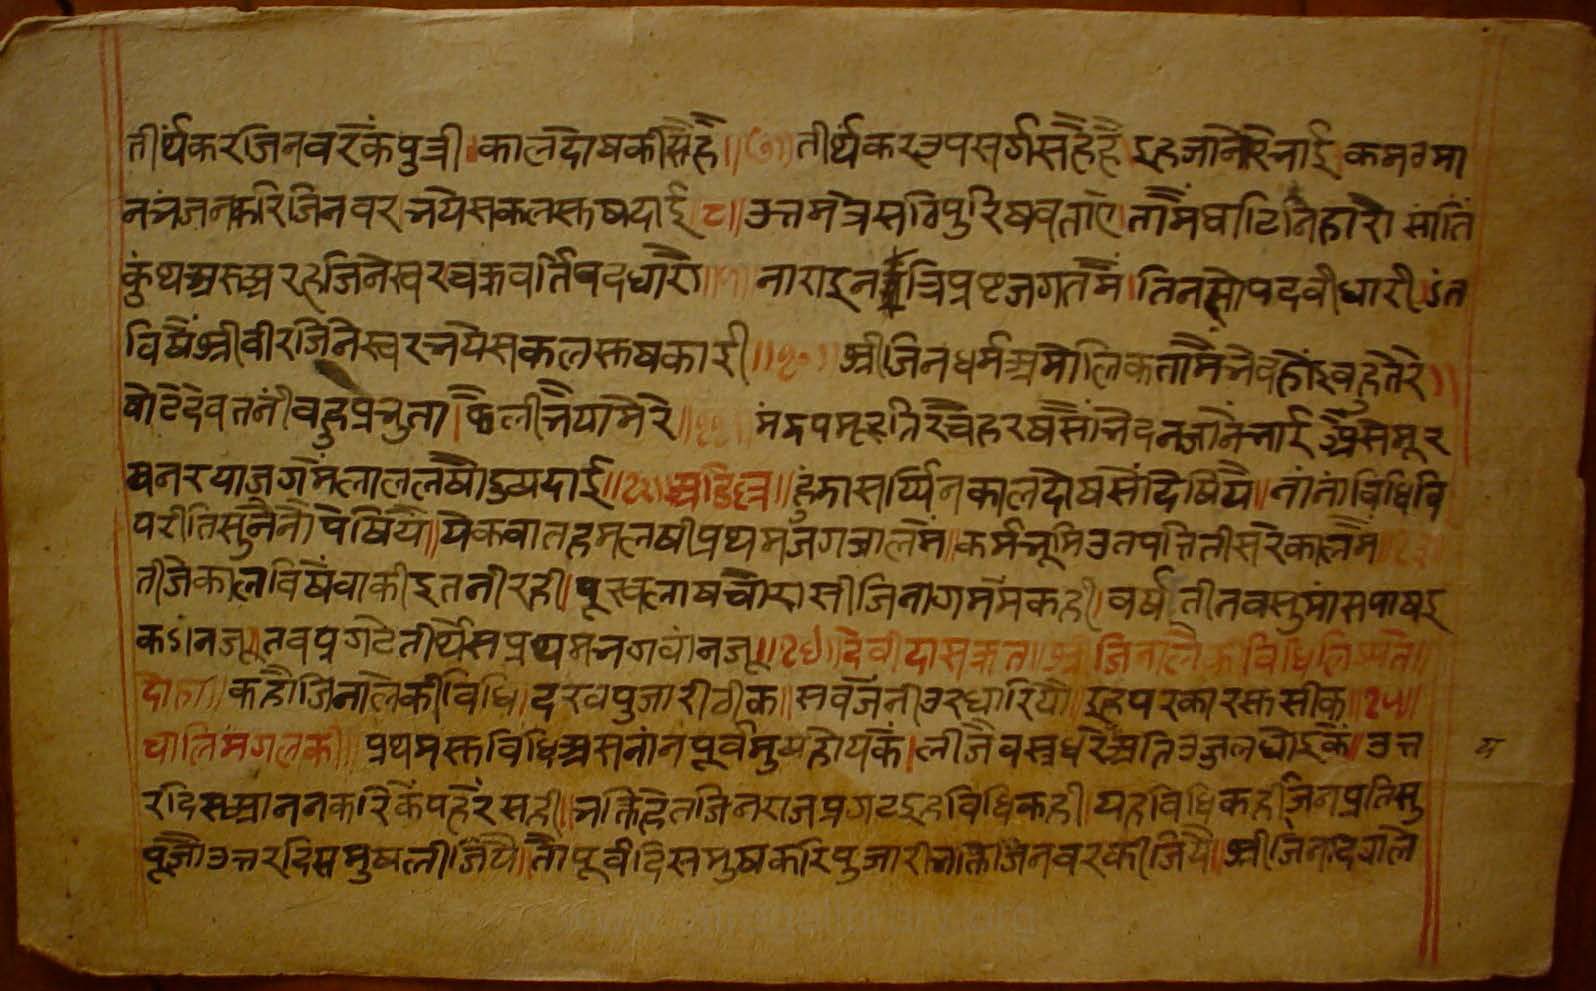 तीर्थकरजिनवरकैं पुत्री।कालदोषकीसैहै॥७॥तीर्थकरउपसर्गसहैहै इहजांनौरेभाई कमठमा
नभंजनकरिजिनवर भयेसकलसुषदाई॥८॥उत्तमत्रेसठिपुरिषबताए।तामैंघाटिनिहारो सांति
कुंथअरुअरहजिनेस्वरचक्रवर्तिपदधारो॥९॥नाराइन त्रिप्रष्टजगतमैं।तिनसोपदवीधारी।अंत
विषैंश्रीवीरजिनेस्वरभयेसकलसुषकारी॥१०॥श्रीजिनधर्मअमोलिकतामैंभेवहोंइबहुतेरे॥
षोटेदेवतनीबहुप्रभुता।फैलीभैयामेरे॥११॥
षनरयाजगमैंलाललषौदुषदाई॥१२॥अडिल्ल॥हुंडासर्प्पिनकालदोषसैंदेषियै॥नांनांविधिवि
परीतिसुनैनौपेषियै॥येकबातहमलषीप्रथमजगजालमैं॥कर्मभूमिउतपत्तितीसरेकालमैं॥१३॥
तीजेकालविषैंबाकीइतनीरही।पूरबलाषचौरासीजिनागममैंकही।वर्षतीनवसुमांसपाषइ
कऽांनजू॥तबप्रगटेतीर्थेसप्रथमभगवांनजू॥१४॥देवीदासक्रत॥श्रीजिनालैकीविधिलिष्यते॥
दोहा॥कहौंजिनालैकीविधि।दरवपुजारीठीक॥सर्वजैंनीउरधारियौ॥इहपरकारसुसीक॥१५॥
चालिमंगलकी॥प्रथमसुविधिअसनांनपूर्वमुषहोयकैं।लीजैवस्त्रधरैंअतिउजुलधोइकैं॥उत्त
रदिसआननकरिकैंपहरैंसही॥भक्तिहेतजिनराजप्रगटइहविधिकही।यहविधिकहीजिनप्रतिसु
पूजौउत्तरदिसमुषलीजियै॥तौपूर्वदिसमुषकरिपुजारीभक्तिजिनवरकीजियै॥श्रीजिनादि